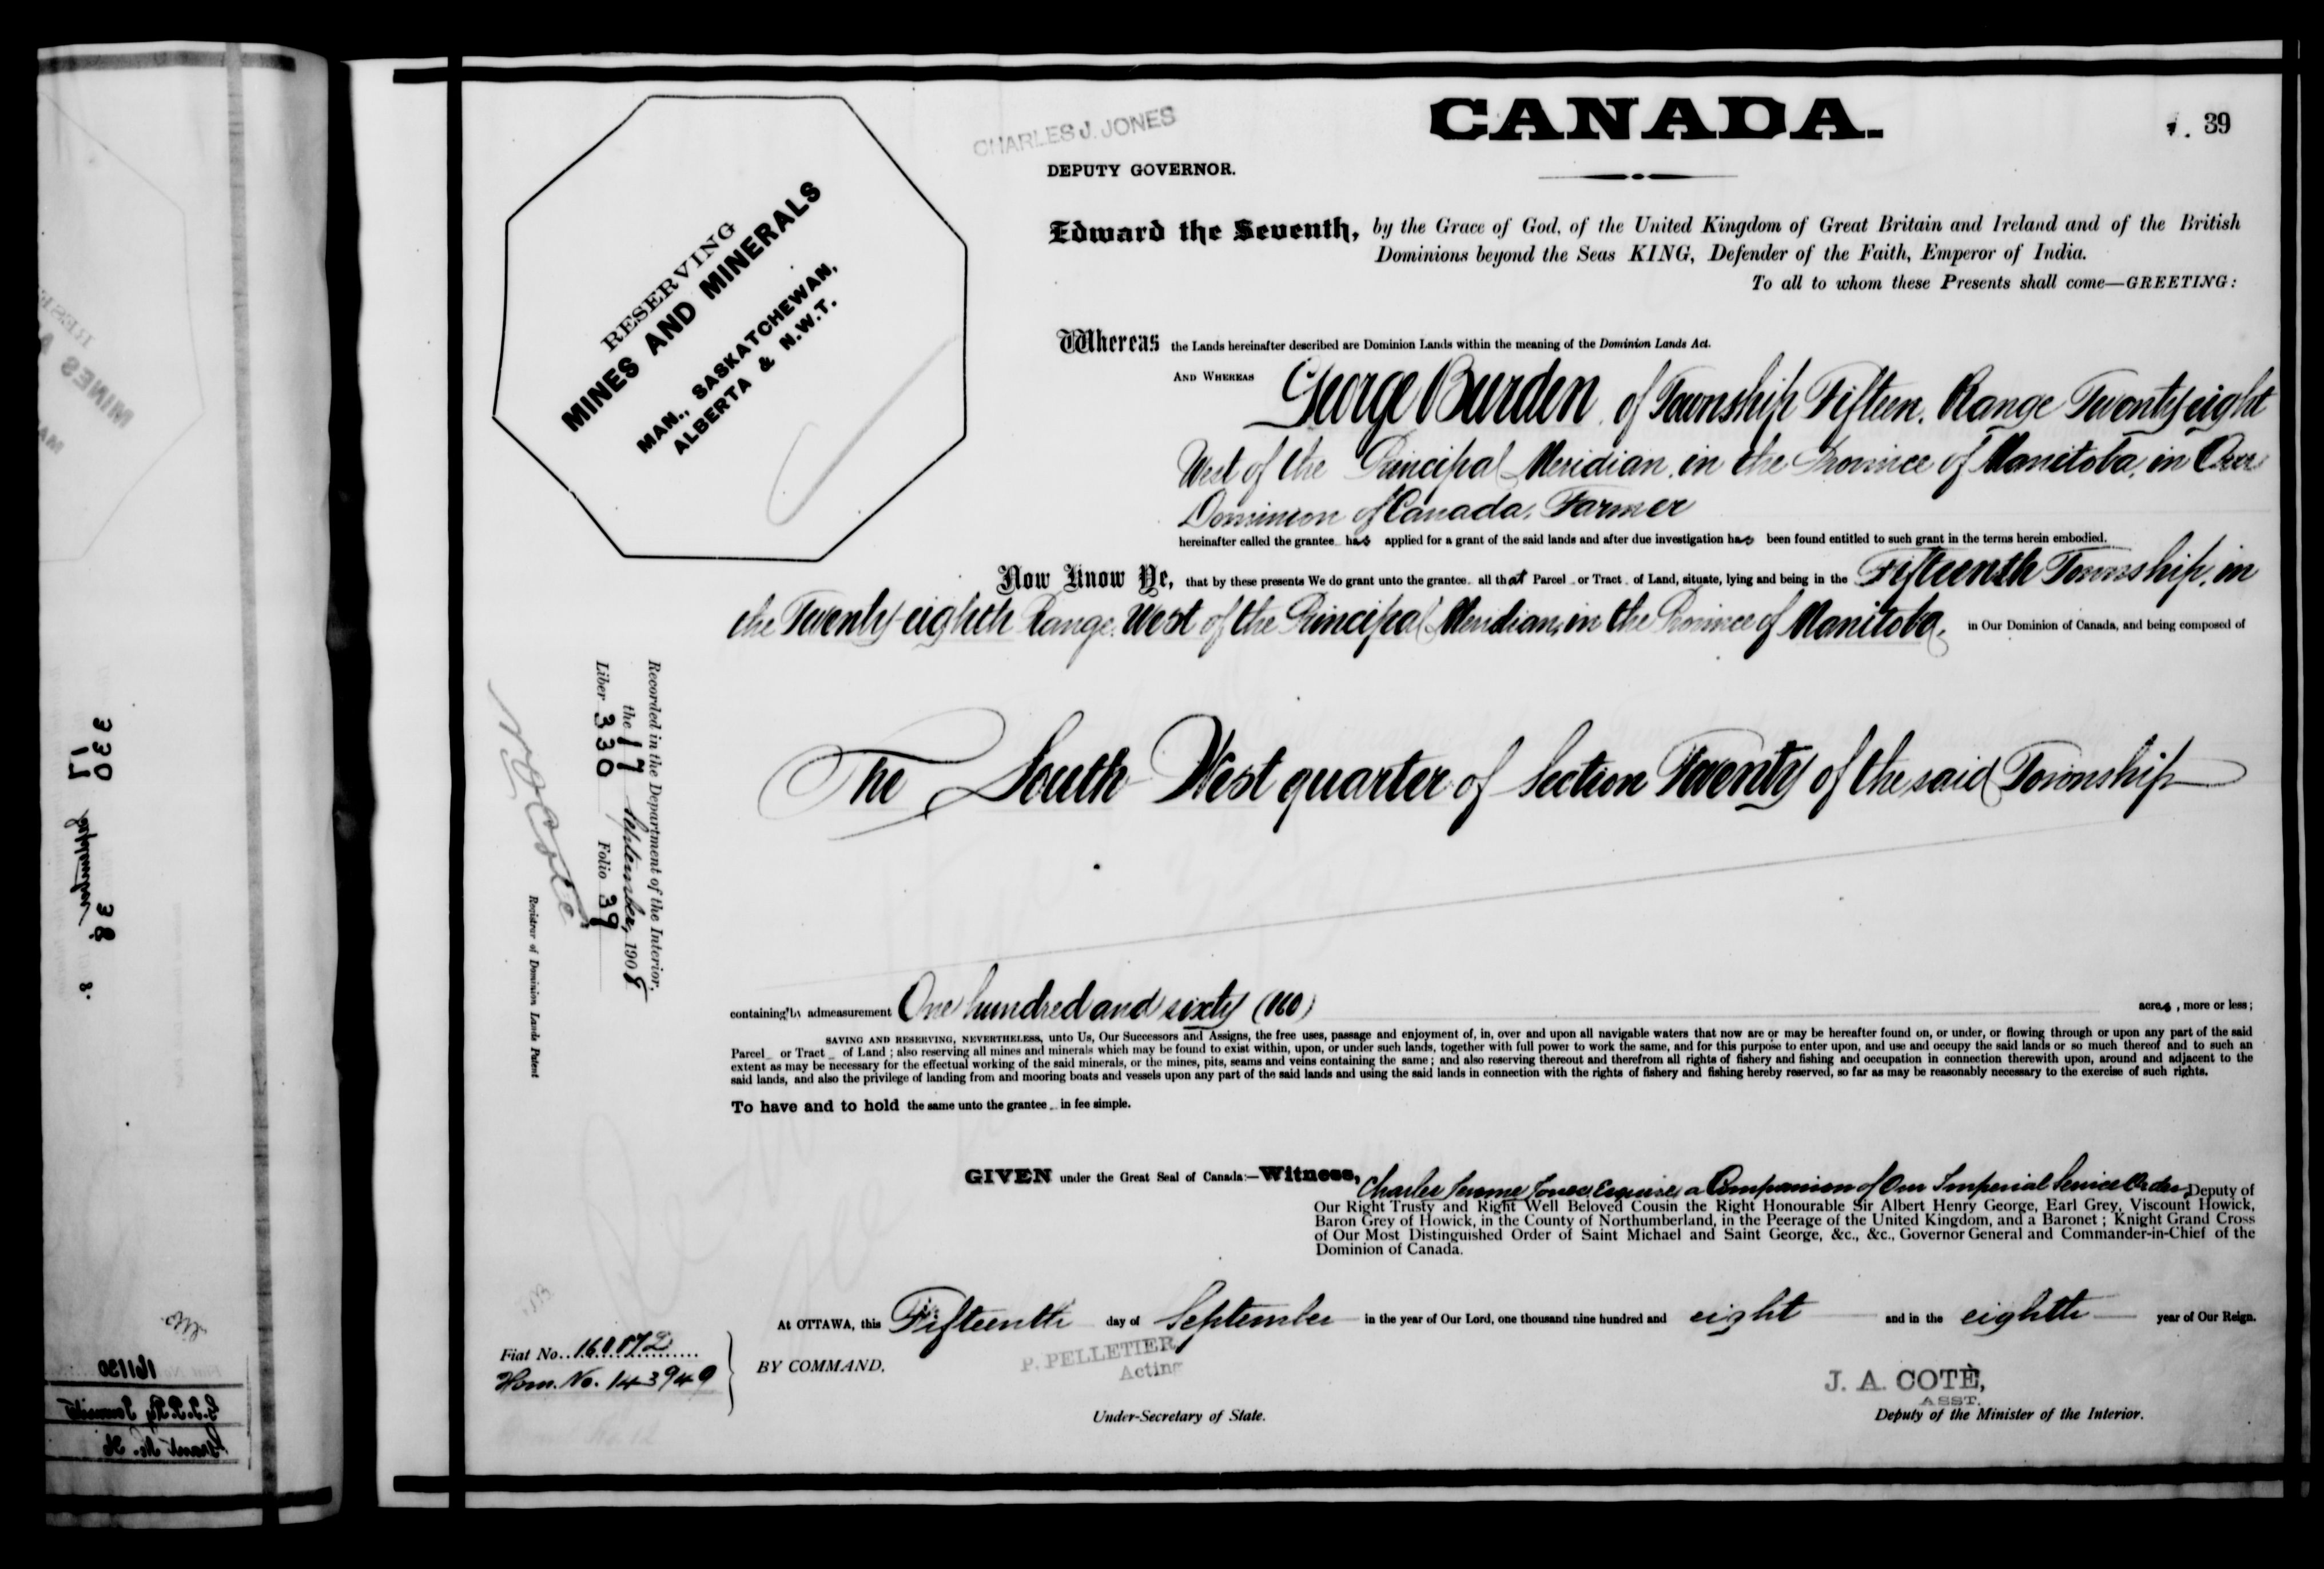 CANADA.
39
CHARLES J. JONES
DEPUTY GOVERNOR.
RESERVING
MINES AND MINERALS
MAN., SASKATCHEWAN,
ALBERTA & N.W.T.
Edward the Seventh, by the Grace of God, of the United Kingdom of Great Britain and Ireland and of the British
Dominions beyond the Seas KING, Defender of the Faith, Emperor of India.
To all to whom these Presents shall come—GREETING:
Whereas the Lands hereinafter described are Dominion Lands within the meaning of the Dominion Lands Act.
AND WHEREAS George Burden of Township Fifteen, Range Twenty eight
West of the Principal Meridian, in the Province of Manitoba, in Our
Dominion of Canada, Farmer
hereinafter called the grantee has applied for a grant of the said lands and after due investigation has been found entitled to such grant in the terms herein embodied.
Now Know Ye, that by these presents We do grant unto the grantee all that Parcel or Tract of Land, situate, lying and being in the Fifteenth Township, in
the Twenty-eighth Range, West of the Principal Meridian, in the Province of Manitoba, in Our Dominion of Canada, and being composed of
The South West quarter of Section Twenty of the said Township
Recorded in the Department of the Interior,
the 17 September, 1908
Liber 330 Folio 39
Registrar of Dominion Lands Patent
containing by admeasurement One hundred and sixty (160) acres, more or less;
SAVING AND RESERVING, NEVERTHELESS, unto Us, Our Successors and Assigns, the free uses, passage and enjoyment of, in, over and upon all navigable waters that now are or may be hereafter found on, or under, or flowing through or upon any part of the said
Parcel or Tract of Land; also reserving all mines and minerals which may be found to exist within, upon, or under such lands, together with full power to work the same, and for this purpose to enter upon, and use and occupy the said lands or so much thereof and to such an
extent as may be necessary for the effectual working of the said minerals, or the mines, pits, seams and veins containing the same; and also reserving thereout and therefrom all rights of fishery and fishing and occupation in connection therewith upon, around and adjacent to the
said lands, and also the privilege of landing from and mooring boats and vessels upon any part of the said lands and using the said lands in connection with the rights of fishery and fishing hereby reserved, so far as may be reasonably necessary to the exercise of such rights.
To have and to hold the same unto the grantee in fee simple.
GIVEN under the Great Seal of Canada:—Witness, Charles Jones Esquire, a Companion of Our Imperial Service Order Deputy of
Our Right Trusty and Right Well Beloved Cousin the Right Honourable Sir Albert Henry George, Earl Grey, Viscount Howick,
Baron Grey of Howick, in the County of Northumberland, in the Peerage of the United Kingdom, and a Baronet; Knight Grand Cross
of Our Most Distinguished Order of Saint Michael and Saint George, &c., &c., Governor General and Commander-in-Chief of the
Dominion of Canada.
At OTTAWA, this Fifteenth day of September in the year of Our Lord, one thousand nine hundred and eight and in the eighth year of Our Reign.
Fiat No.
Hom. No. 143949
BY COMMAND,
P. PELLETIER
Acting
Under-Secretary of State.
J. A. COTÉ,
ASST.
Deputy of the Minister of the Interior.